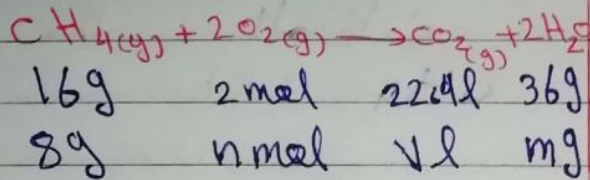 CH4(g) + 2O2(g) → CO2(g) + 2H2O
16g 2mol 22,4l 36g
8g nmol Vl mg